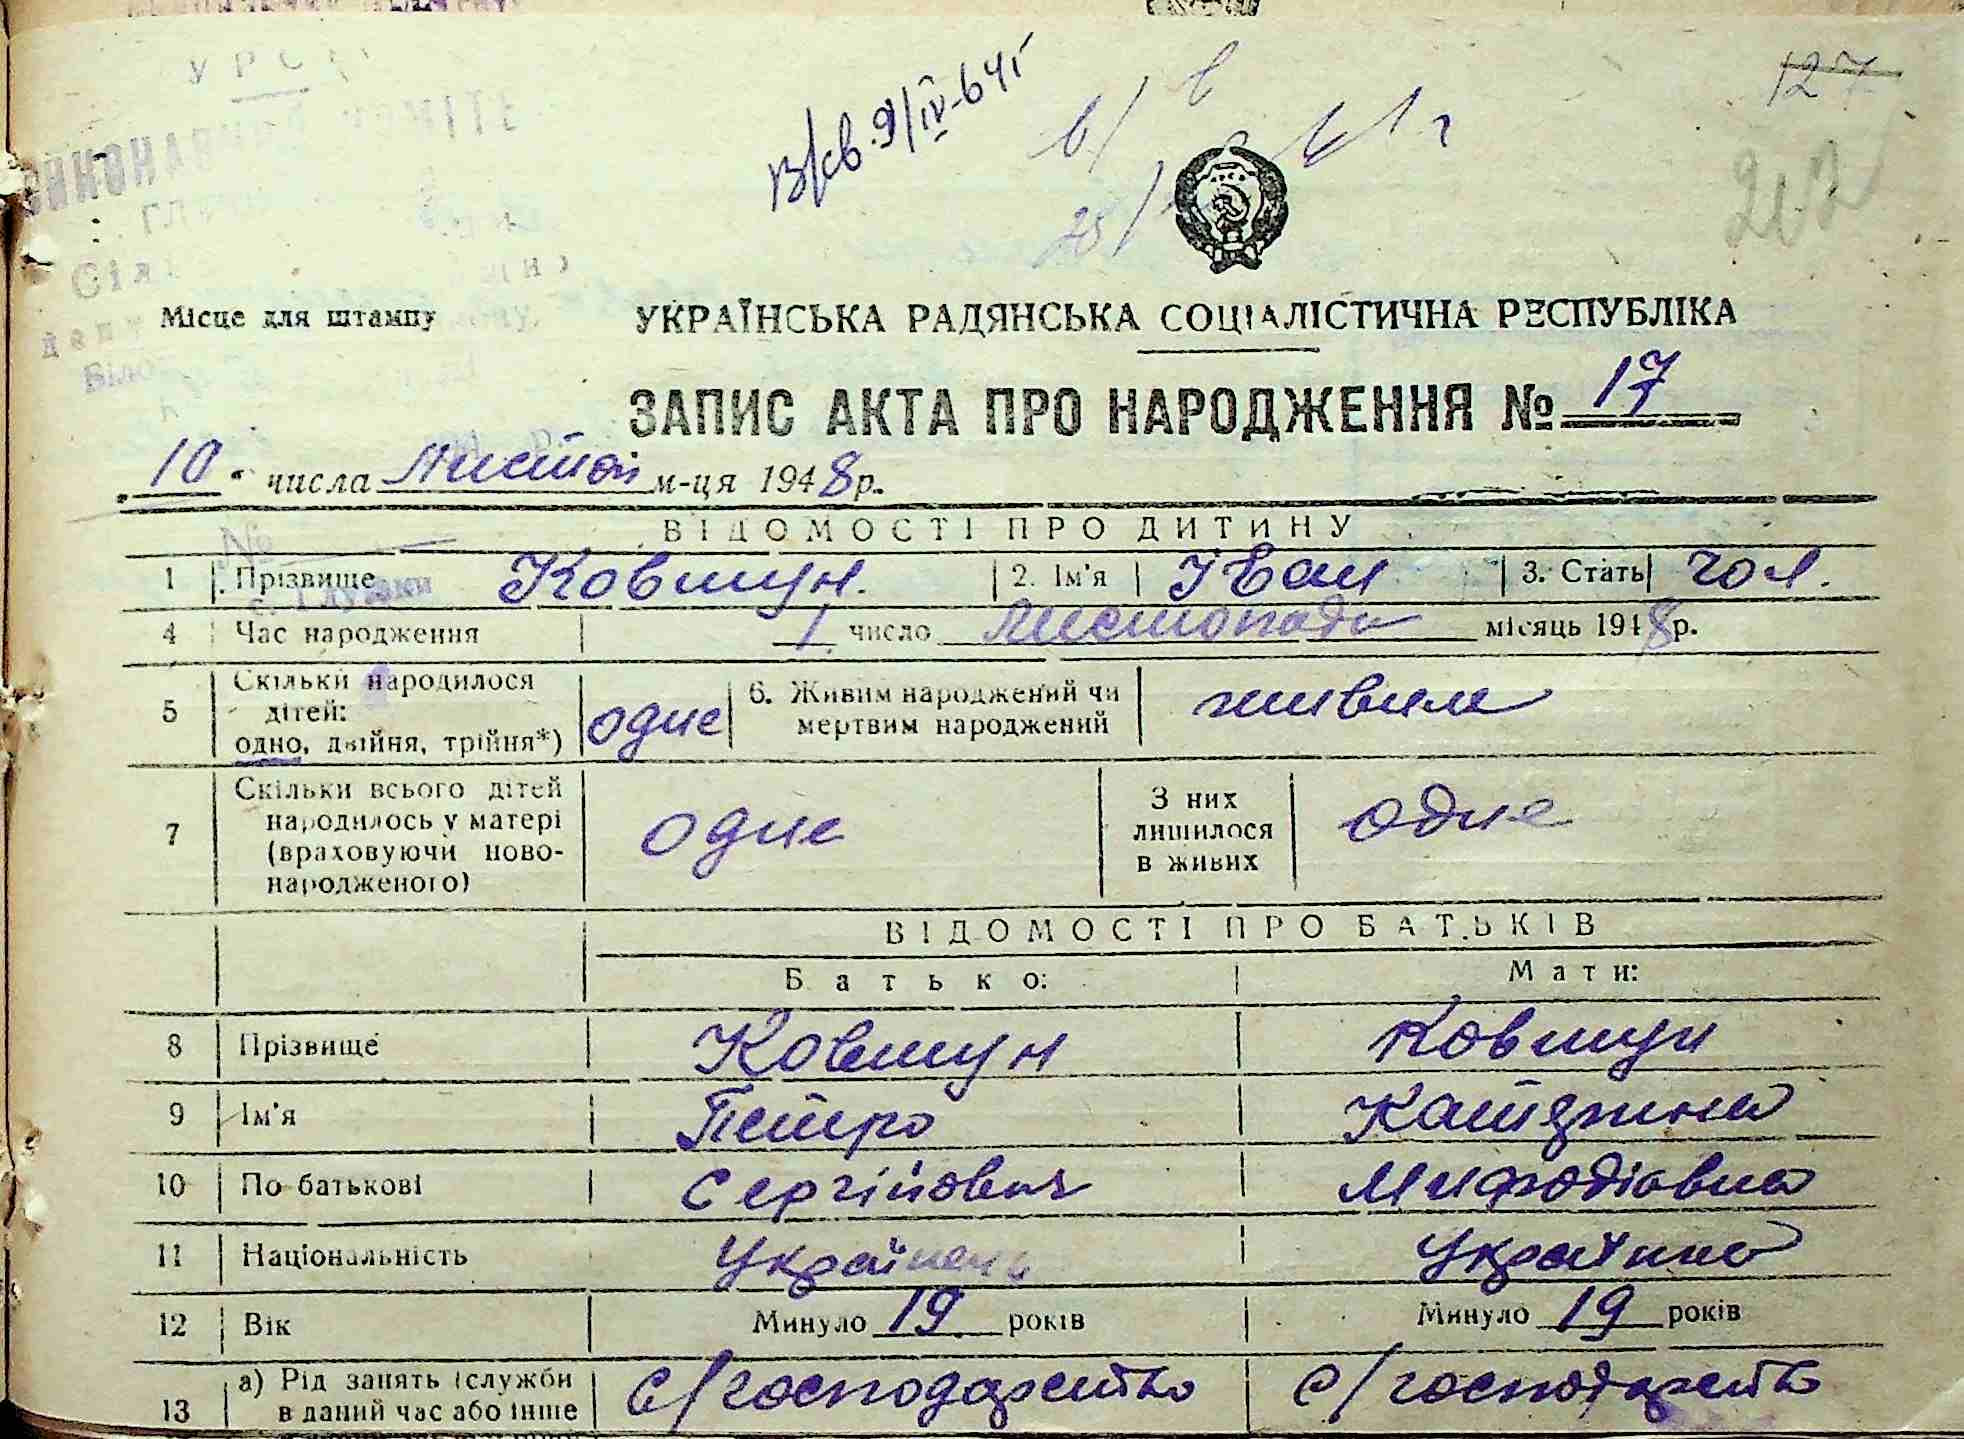 УРС
ВИКОНАВЧИЙ КОМІТЕ
Місце для штампу
В/св. 9/IV-64г
127
212
УКРАЇНСЬКА РАДЯНСЬКА СОЦІАЛІСТИЧНА РЕСПУБЛІКА
ЗАПИС АКТА ПРО НАРОДЖЕННЯ № 17
"10" числа Листоп м-ця 1948 р.
ВІДОМОСТІ ПРО ДИТИНУ
1 Прізвище Ковтун. 2. Ім'я Іван 3. Стать чол.
с. Глушки
4 Час народження 1 число Листопада місяць 1948 р.
5 Скільки народилося дітей: одно, двійня, трійня*) одне 6. Живим народжений чи мертвим народжений живим
7 Скільки всього дітей народилось у матері (враховуючи новонародженого) одне З них лишилося в живих одне
ВІДОМОСТІ ПРО БАТЬКІВ
Батько: Мати:
8 Прізвище Ковтун Ковтун
9 Ім'я Петро Катерина
10 По батькові Сергійович Мифодіовна
11 Національність Українець Українка
12 Вік Минуло 19 років Минуло 19 років
13 а) Рід занять (служби в даний час або інше с/господарство с/господарство